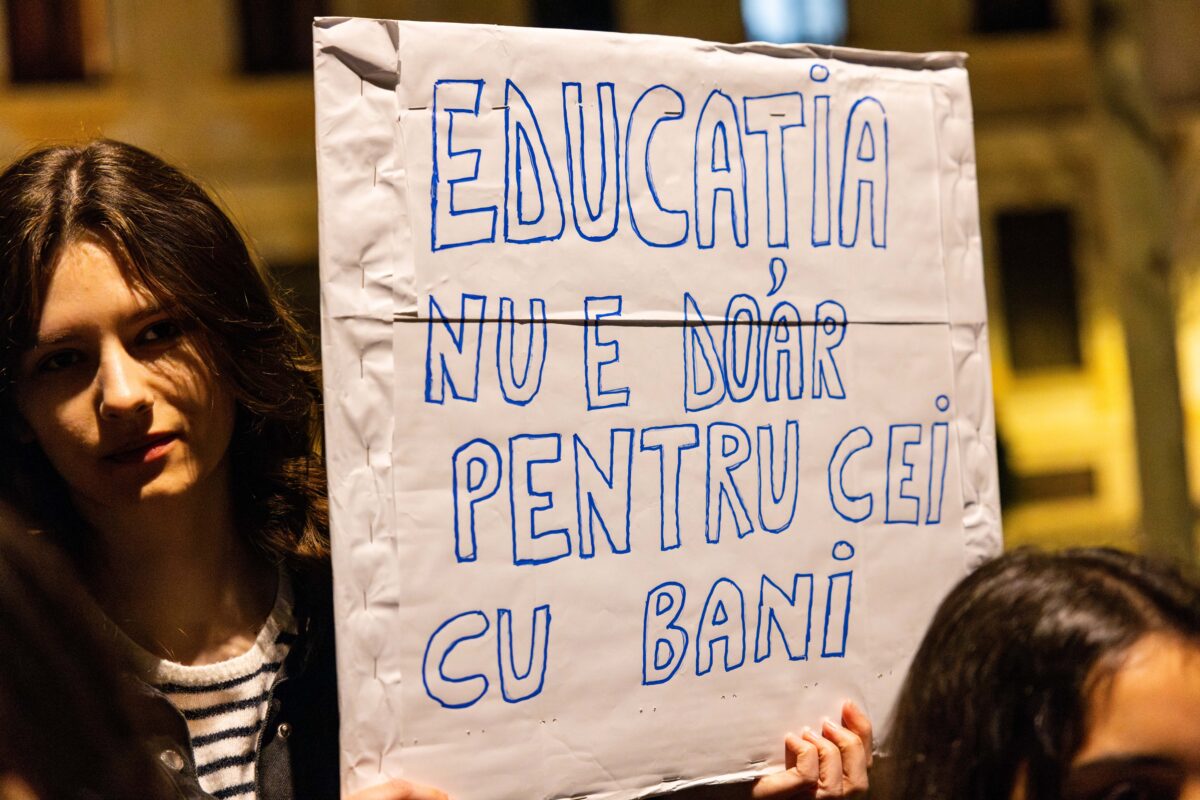 EDUCAȚIA
NU E DOAR
PENTRU CEI
CU BANI